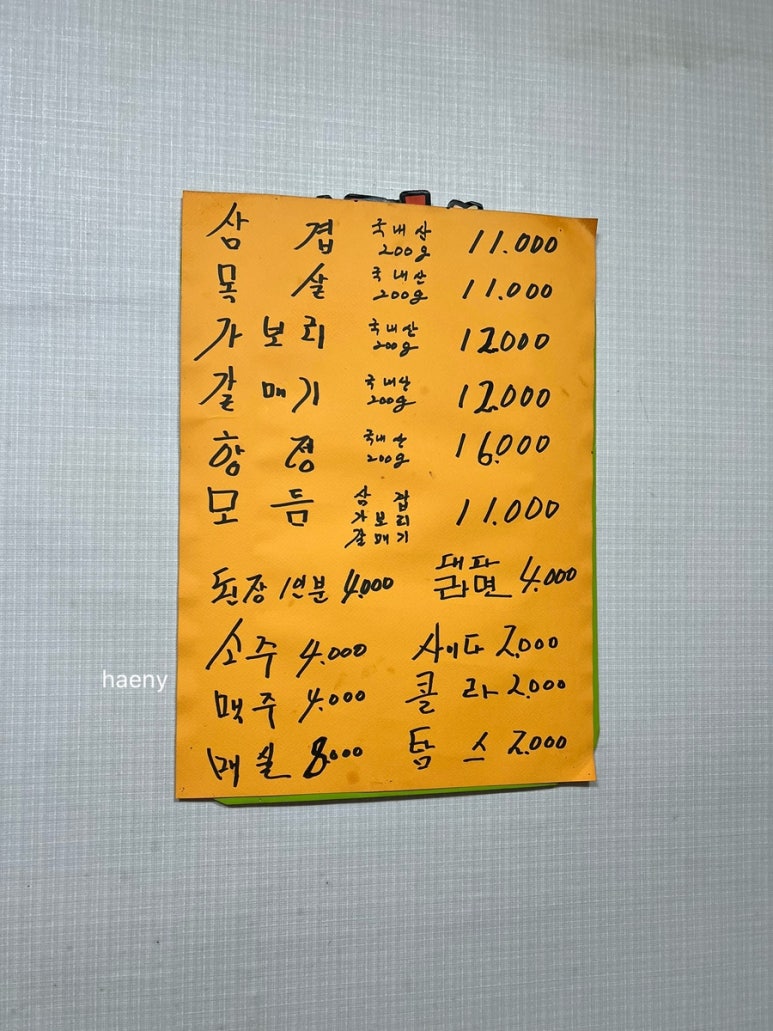 삼 겹 국내산 200g 11.000
목 살 국내산 200g 11.000
가 보 리 국내산 200g 12.000
갈 매 기 국내산 200g 12.000
항 정 국내산 200g 16.000
모 듬 삼 겹 가 보 리 갈 매 기 11.000
된장 1인분 4.000 대파 라면 4.000
소주 4.000 사이다 2.000
맥주 4.000 콜 라 2.000
매실 8.000 탐 스 2.000
haeny